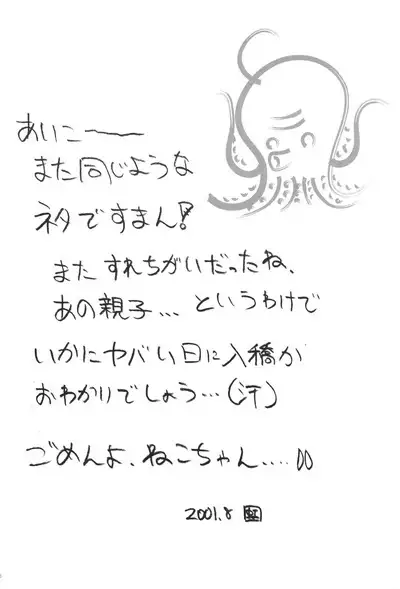 あいこ〜
また同じような
ネタですまん!
また すれちがいだったね、
あの親子… というわけで
いかにヤバい日に入稿か
おわかりでしょう…(汗)
ごめんよ、ねこちゃん….
2001.8